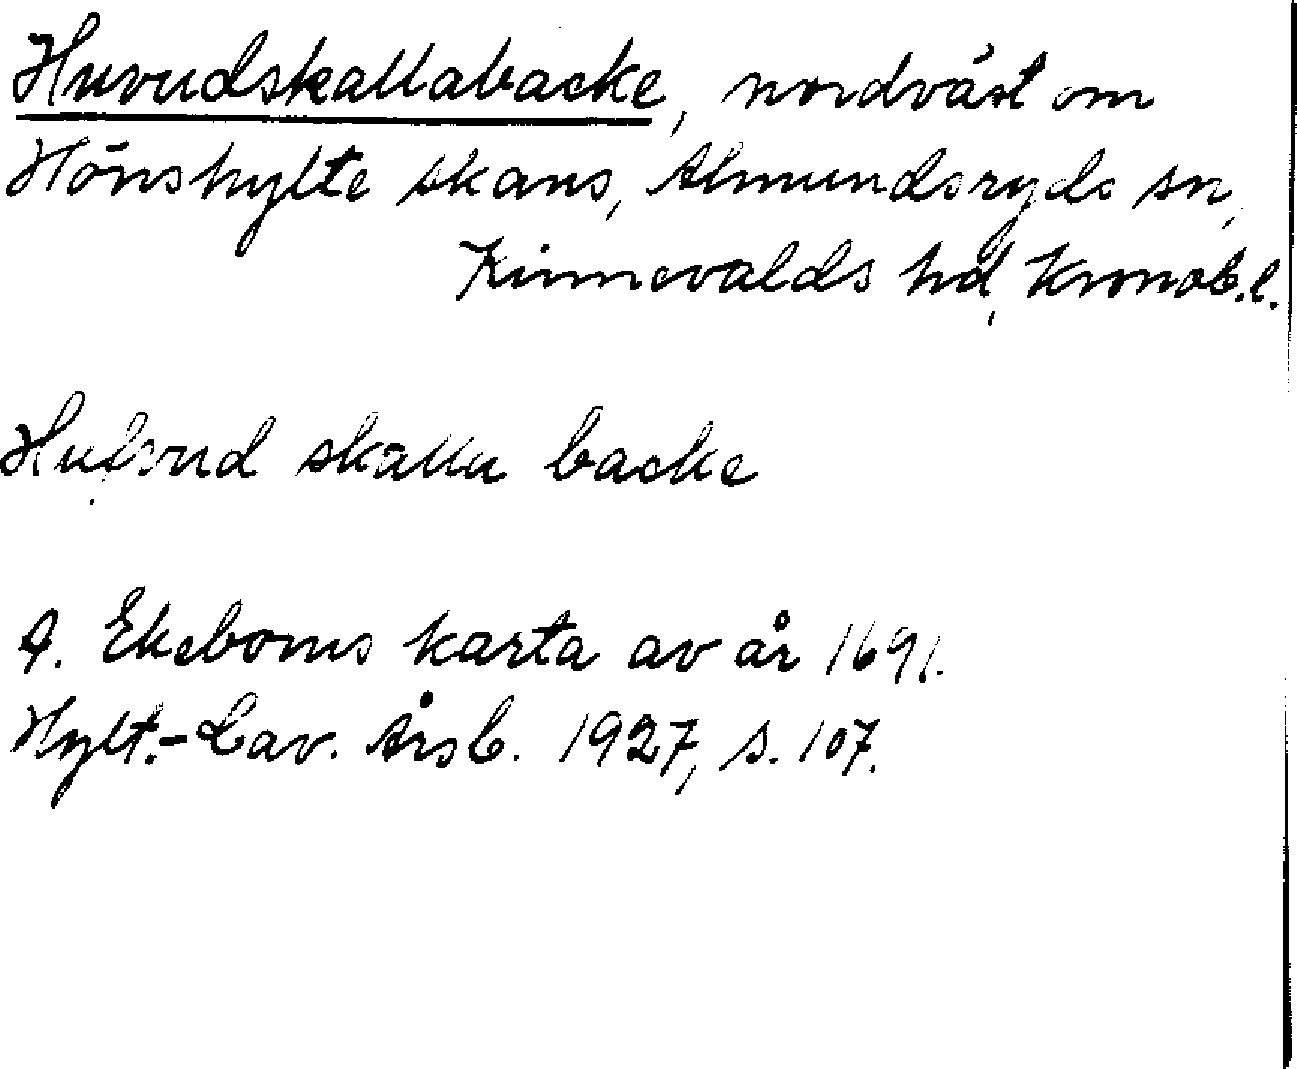 Huvudskallabacke, nordväst om
Hönshylte skans, Almundsryds sn,
Kinnevalds hd, Kronob. l.
Hufvud skalla backe
A. Ekeboms karta av år 1691.
Hylt.-Cav. Årsb. 1927, s. 107.